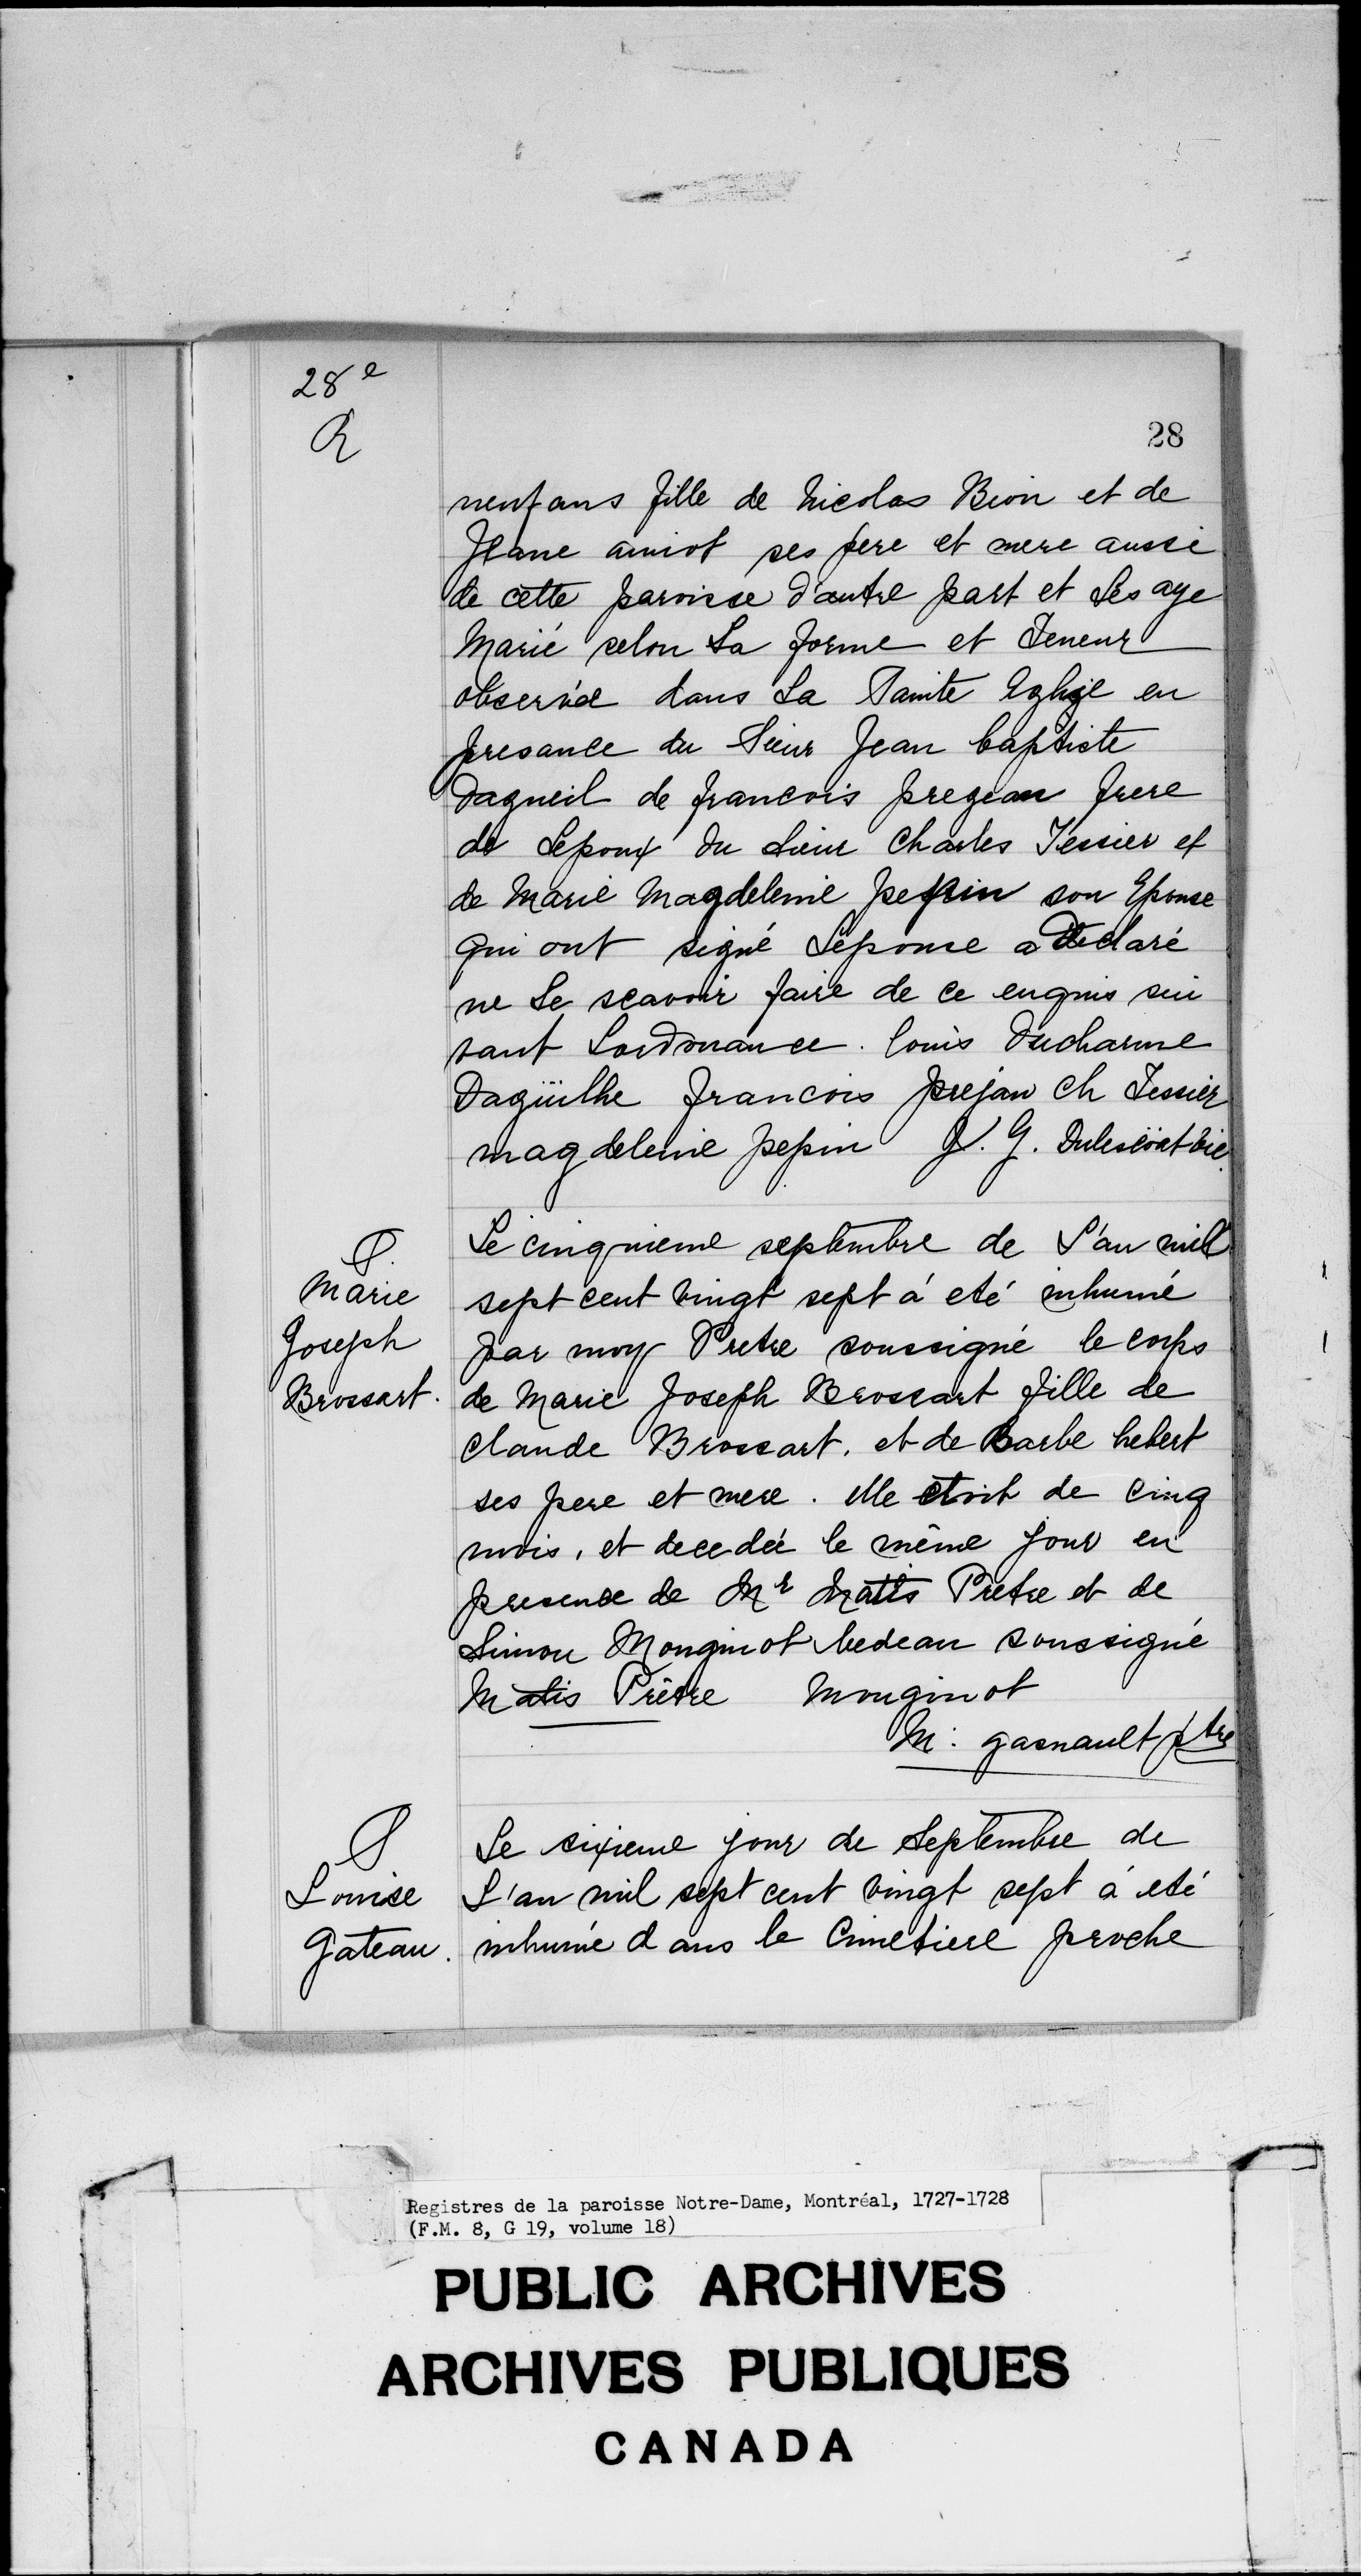 28e
R
28
neuf ans fille de Nicolas Bion et de
Jeane amiot ses pere et mere aussi
de cette paroisse d'autre part et Les aye
Marié selon La forme et Teneur
observée dans La Sainte Eglise en
presance du Sieur Jean baptiste
dagueil de francois prejean frere
de Lepoux du sieur Charles Tessier et
de Marie Magdeleine pepin son Epouse
qui ont signé Lepouse a declaré
ne Le scavoir faire de ce enquis sui
vant Lordonnance. louis ducharme
Dagüilhe francois prejan Ch Tessier
magdeleine pepin J. G. Dulescöat vic.
S.
Marie
Joseph
Brossart.
Le cinquieme septembre de L'an mil
sept cent vingt sept á eté inhumé
par moy Pretre soussigné le corps
de Marie Joseph Brossart fille de
claude Brossart. et de Barbe hebert
ses pere et mere. elle etoit de cinq
mois, et decedée le même jour en
presence de Mr Matis Pretre et de
Simon Monginot bedeau soussigné
Matis Prêtre Mouginot
M: gasnault ptre
S
Louise
Gateau.
Le sixieme jour de Septembre de
L'an mil sept cent vingt sept á eté
inhumée dans le Cimetiere proche
Registres de la paroisse Notre-Dame, Montréal, 1727-1728
(F.M. 8, G 19, volume 18)
PUBLIC ARCHIVES
ARCHIVES PUBLIQUES
CANADA